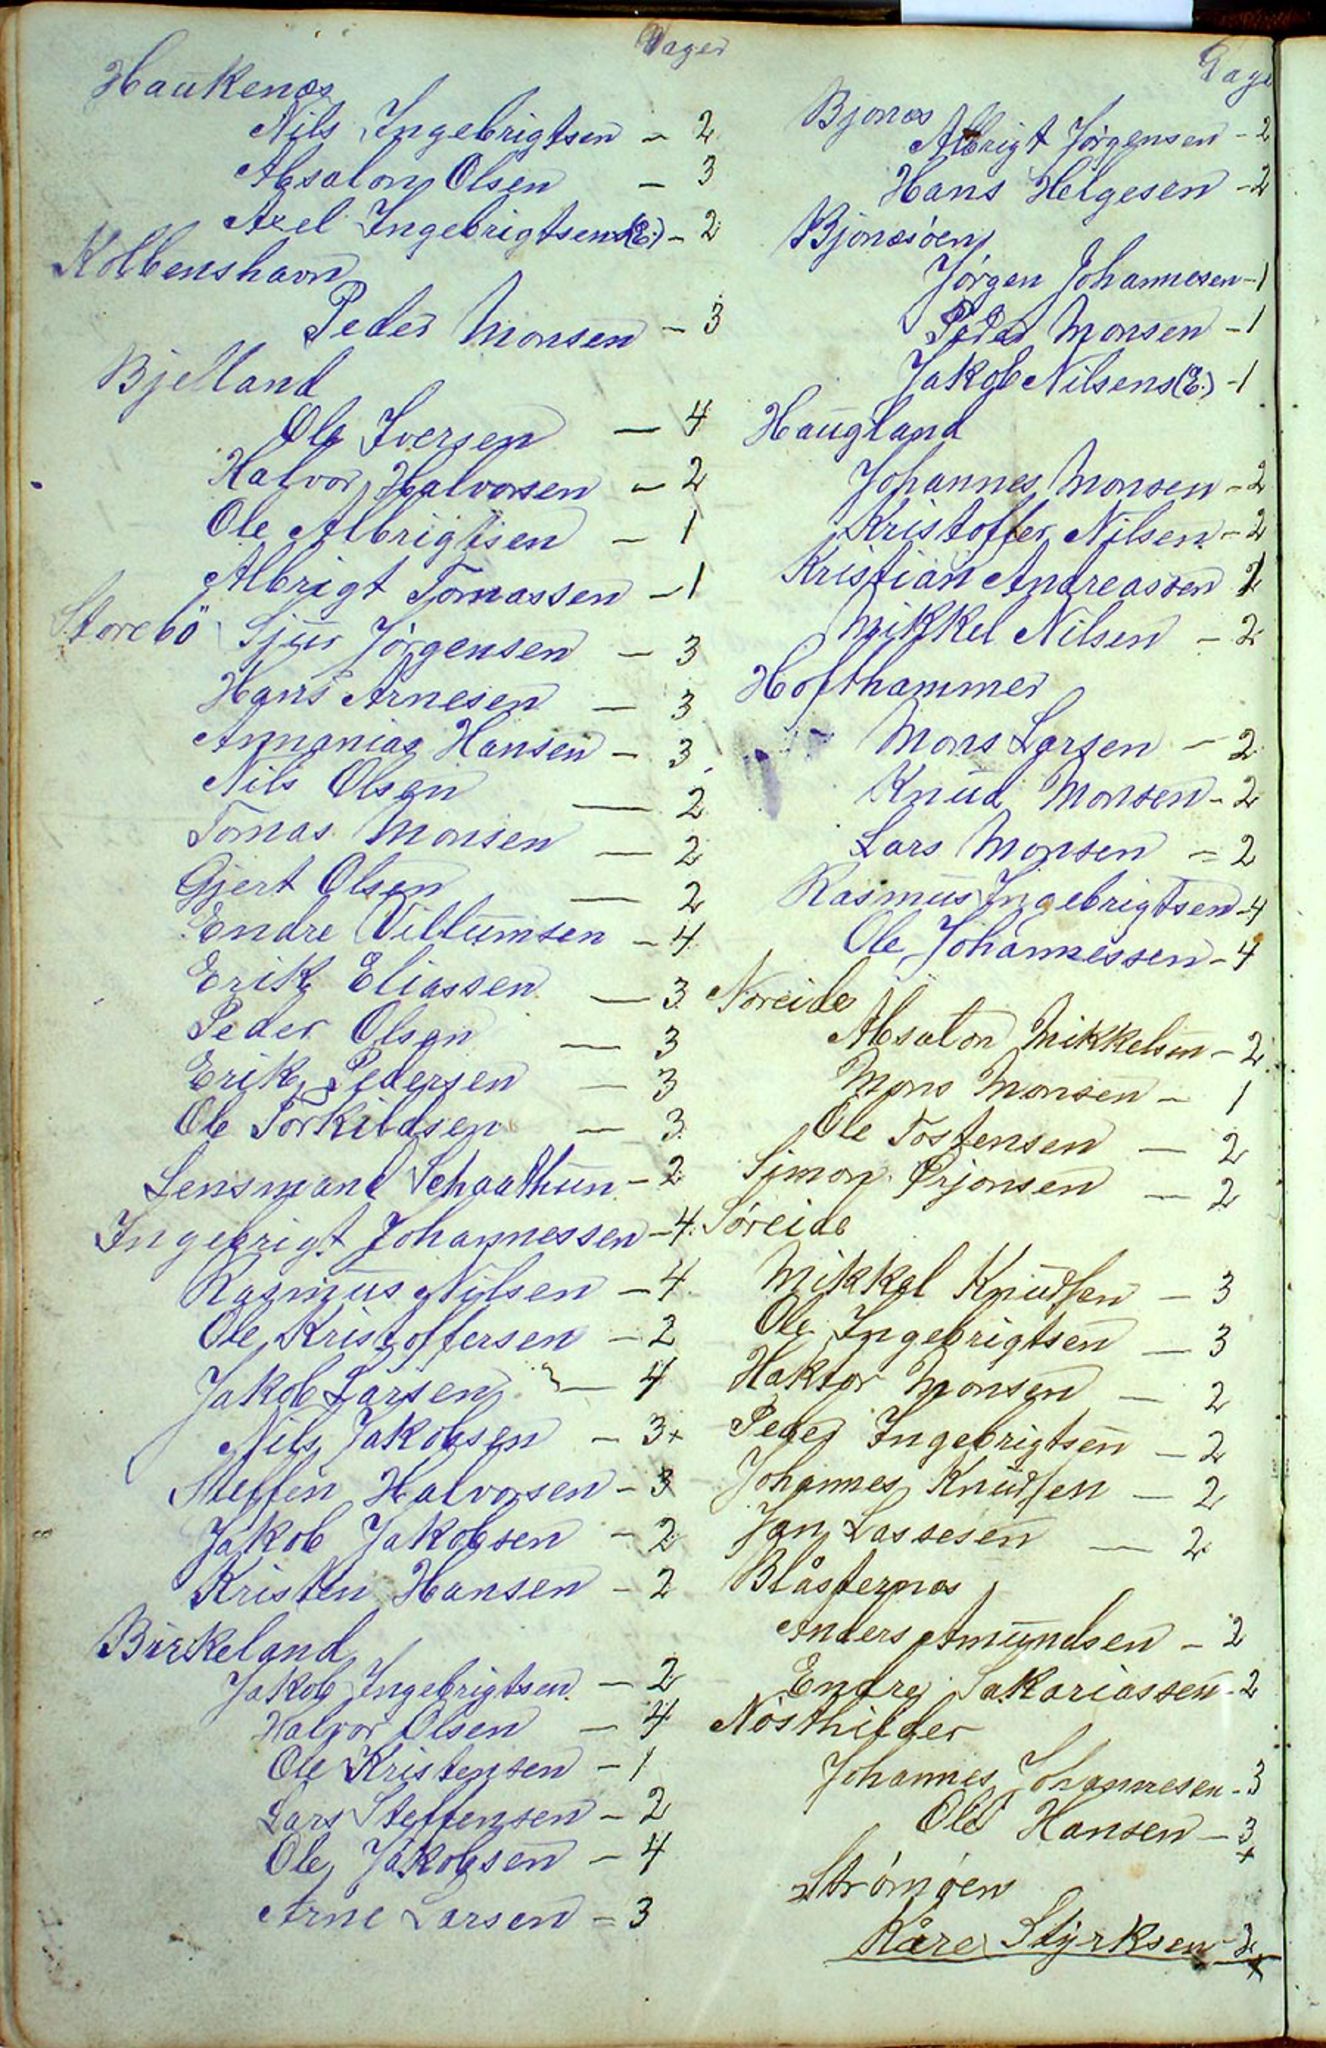 Dager
Haukenæs
Nils Ingebrigtsen – 2
Absalon Olsen – 3
Axel Ingebrigtsens (E.) – 2
Kolbenshavn
Peder Monsen – 3
Bjelland
Ole Iversen – 4
Halvor Halvorsen – 2
Ole Albrigtsen – 1
Albrigt Tomassen – 1
Storebö Sjur Jørgensen – 3
Hans Arnesen – 3
Annanias Hansen – 3
Nils Olsen – 2
Tomas Monsen – 2
Gjert Olsen – 2
Endre Villumsen – 4
Erik Eliassen – 3
Peder Olsen – 3
Erik Pedersen – 3
Ole Torkildsen – 3
Lensmand Schaathun – 2
Ingebrigt Johannessen – 4
Rasmus Nilsen – 4
Ole Kristoffersen – 2
Jakob Larsen – 4
Nils Jakobsen – 3+
Steffen Halvorsen – 3
Jakob Jakobsen – 2
Kristen Hansen – 2
Birkeland
Jakob Ingebrigtsen – 2
Halvor Olsen – 4
Ole Kristensen – 1
Lars Steffensen – 2
Ole Jakobsen – 4
Arne Larsen – 3
Dage
Bjonæs
Albrigt Jørgensen – 2
Hans Helgesen – 2
Bjonæsøen
Jørgen Johannesen – 1
Peder Monsen – 1
Jakob Nilsens (E.) – 1
Haugland
Johannes Monsen – 2
Kristoffer Nilsen – 2
Kristian Andreassen
Mikkel Nilsen – 2
Hofthammer
Mons Larsen – 2
Knud Monsen – 2
Lars Monsen – 2
Rasmus Ingebrigtsen – 4
Ole Johannessen – 4
Noreide
Absalon Mikkelsen – 2
Mons Monsen – 1
Ole Tostensen – 2
Simon Ørjonsen – 2
Søreide
Mikkel Knudsen – 3
Ole Ingebrigtsen – 3
Haktor Monsen – 2
Peder Ingebrigtsen – 2
Johannes Knudsen – 2
Jan Lassesen – 2
Blåsternæs
Anders Amundsen – 2
Endre Sakariassen – 2
Nøsthilder
Johannes Johannesen – 3
Ole Hansen – 3+
Strømøen
Kåre Styrksen – 3+